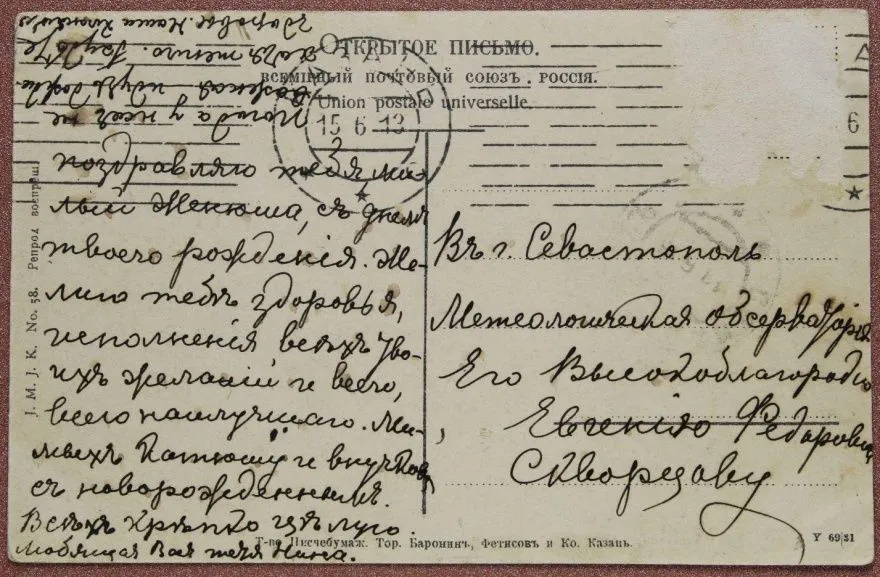 Открытое письмо.
всемірный почтовый союзъ. россія.
Union postale universelle.
15 6 13
Поздравляю тебя ми-
лый Женюша, съ днемъ
твоего рожденія. Же-
лаю тебѣ здоровья,
исполненія всѣхъ тво-
ихъ желаній и всего,
всего наилучшаго. Ми-
лыхъ Катюшу и внучковъ
съ новорожденнымъ.
Всѣхъ крѣпко цѣлую.
Любящая Васъ тетя Нина.
Погода у насъ не
важная идутъ дожди
хотя тепло.
здоровье. Наши
Въ г. Севастополь
Метеологическая обсерваторія
Его Высокоблагородію
Евгенію Федоровичу
Скворцову
J. M. J. K. No. 58. Репрод воспрещ.
Т-во Писчебумаж. Тор. Баронинъ, Фетисовъ и Ко. Казань.
Y 6931
А
6